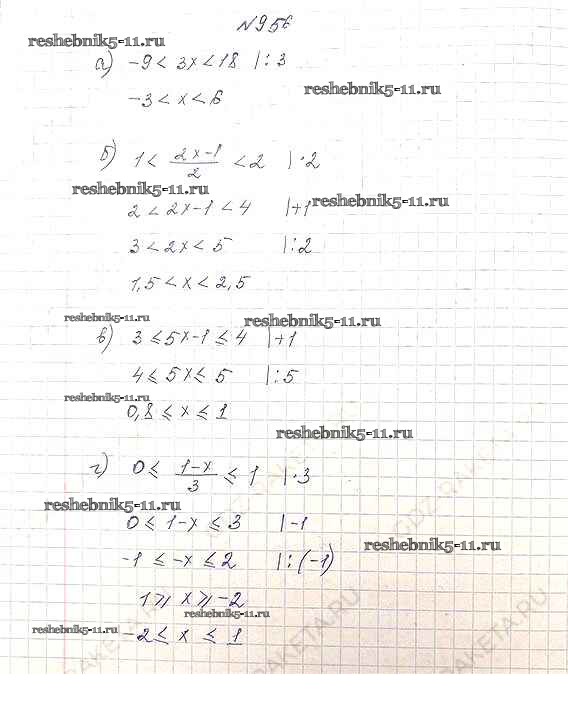 N956
reshebnik5-11.ru
а) -9 < 3x < 18 |: 3
reshebnik5-11.ru
-3 < x < 6
б) 1 < (2x-1)/2 < 2 |· 2
reshebnik5-11.ru
reshebnik5-11.ru
2 < 2x-1 < 4 |+1
3 < 2x < 5 |: 2
1,5 < x < 2,5
reshebnik5-11.ru
reshebnik5-11.ru
в) 3 ≤ 5x-1 ≤ 4 |+1
4 ≤ 5x ≤ 5 |: 5
reshebnik5-11.ru
0,8 ≤ x ≤ 1
reshebnik5-11.ru
г) 0 ≤ (1-x)/3 ≤ 1 |· 3
reshebnik5-11.ru
0 ≤ 1-x ≤ 3 |-1
reshebnik5-11.ru
-1 ≤ -x ≤ 2 |: (-1)
1 ⩾ x ⩾ -2
reshebnik5-11.ru
reshebnik5-11.ru
-2 ≤ x ≤ 1